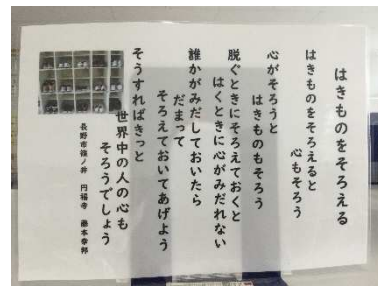 はきものをそろえる
はきものをそろえると
心もそろう
心がそろうと
はきものもそろう
脱ぐときにそろえておくと
はくときに心がみだれない
誰かがみだしておいたら
だまって
そろえておいてあげよう
そうすればきっと
世界中の人の心も
そろうでしょう
長野市篠ノ井 円福寺 藤本幸邦